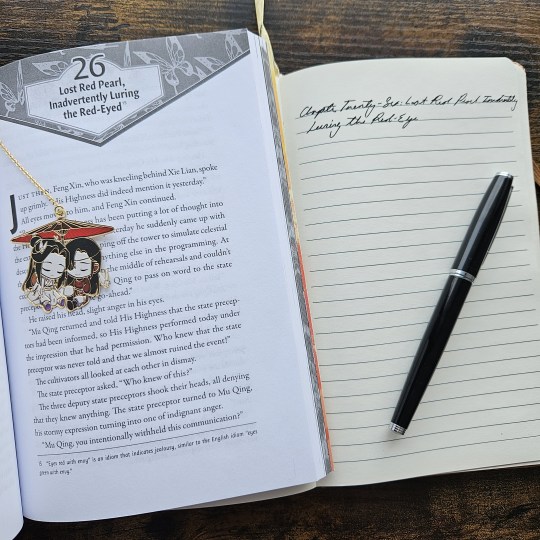 26
Lost Red Pearl,
Inadvertently Luring
the Red-Eyed
JUST THEN, Feng Xin, who was kneeling behind Xie Lian, spoke
up grimly. "His Highness did indeed mention it yesterday."
All eyes moved to him, and Feng Xin continued.
has been putting a lot of thought into
he suddenly came up with
off the tower to simulate celestial
anything else in the programming. At
the middle of rehearsals and couldn't
Qing to pass on word to the state
go-ahead."
He raised his head, slight anger in his eyes.
"Mu Qing returned and told His Highness that the state precep-
tors had been informed, so His Highness performed today under
the impression that he had permission. Who knew that the state
preceptor was never told and that we almost ruined the event!"
The cultivators all looked at each other in dismay.
The state preceptor asked, "Who knew of this?"
The three deputy state preceptors shook their heads, all denying
that they knew anything. The state preceptor turned to Mu Qing,
his stormy expression turning into one of indignant anger.
"Mu Qing, you intentionally withheld this communication?"
8 "Eyes red with envy" is an idiom that indicates jealousy, similar to the English idiom "eyes
green with envy."
Chapter Twenty-Six: Lost Red Pearl
Luring the Red-Eye